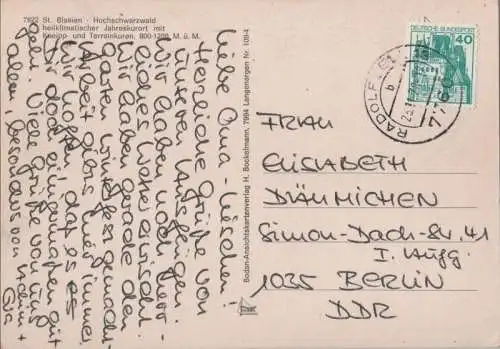 7822 St. Blasien · Hochschwarzwald
heilklimatischer Jahreskurort mit
Kneipp- und Terrainkuren, 800-1200 M. ü. M.
Liebe Oma-Lieschen!
Herzliche Grüße von
unseren Ausflügen.
Wir haben noch herr-
liches Wetter erwischt.
Wir haben gerade den
Garten winterfest gemacht.
Arbeit gibts hier immer.
Wir hoffen, daß es
Dir dort einigermaßen gut
geht. Viele Grüße von uns
allen, besonders von +
Eva
Bodan-Ansichtskartenverlag H. Bockelmann, 7994 Langenargen Nr. 109-4
DEUTSCHE BUNDESPOST
40
RADOLFZELL
b
FRAU
ELISABETH
DÄUMICHEN
Simon-Dach-Str. 41
I. Aufg.
1035 BERLIN
DDR